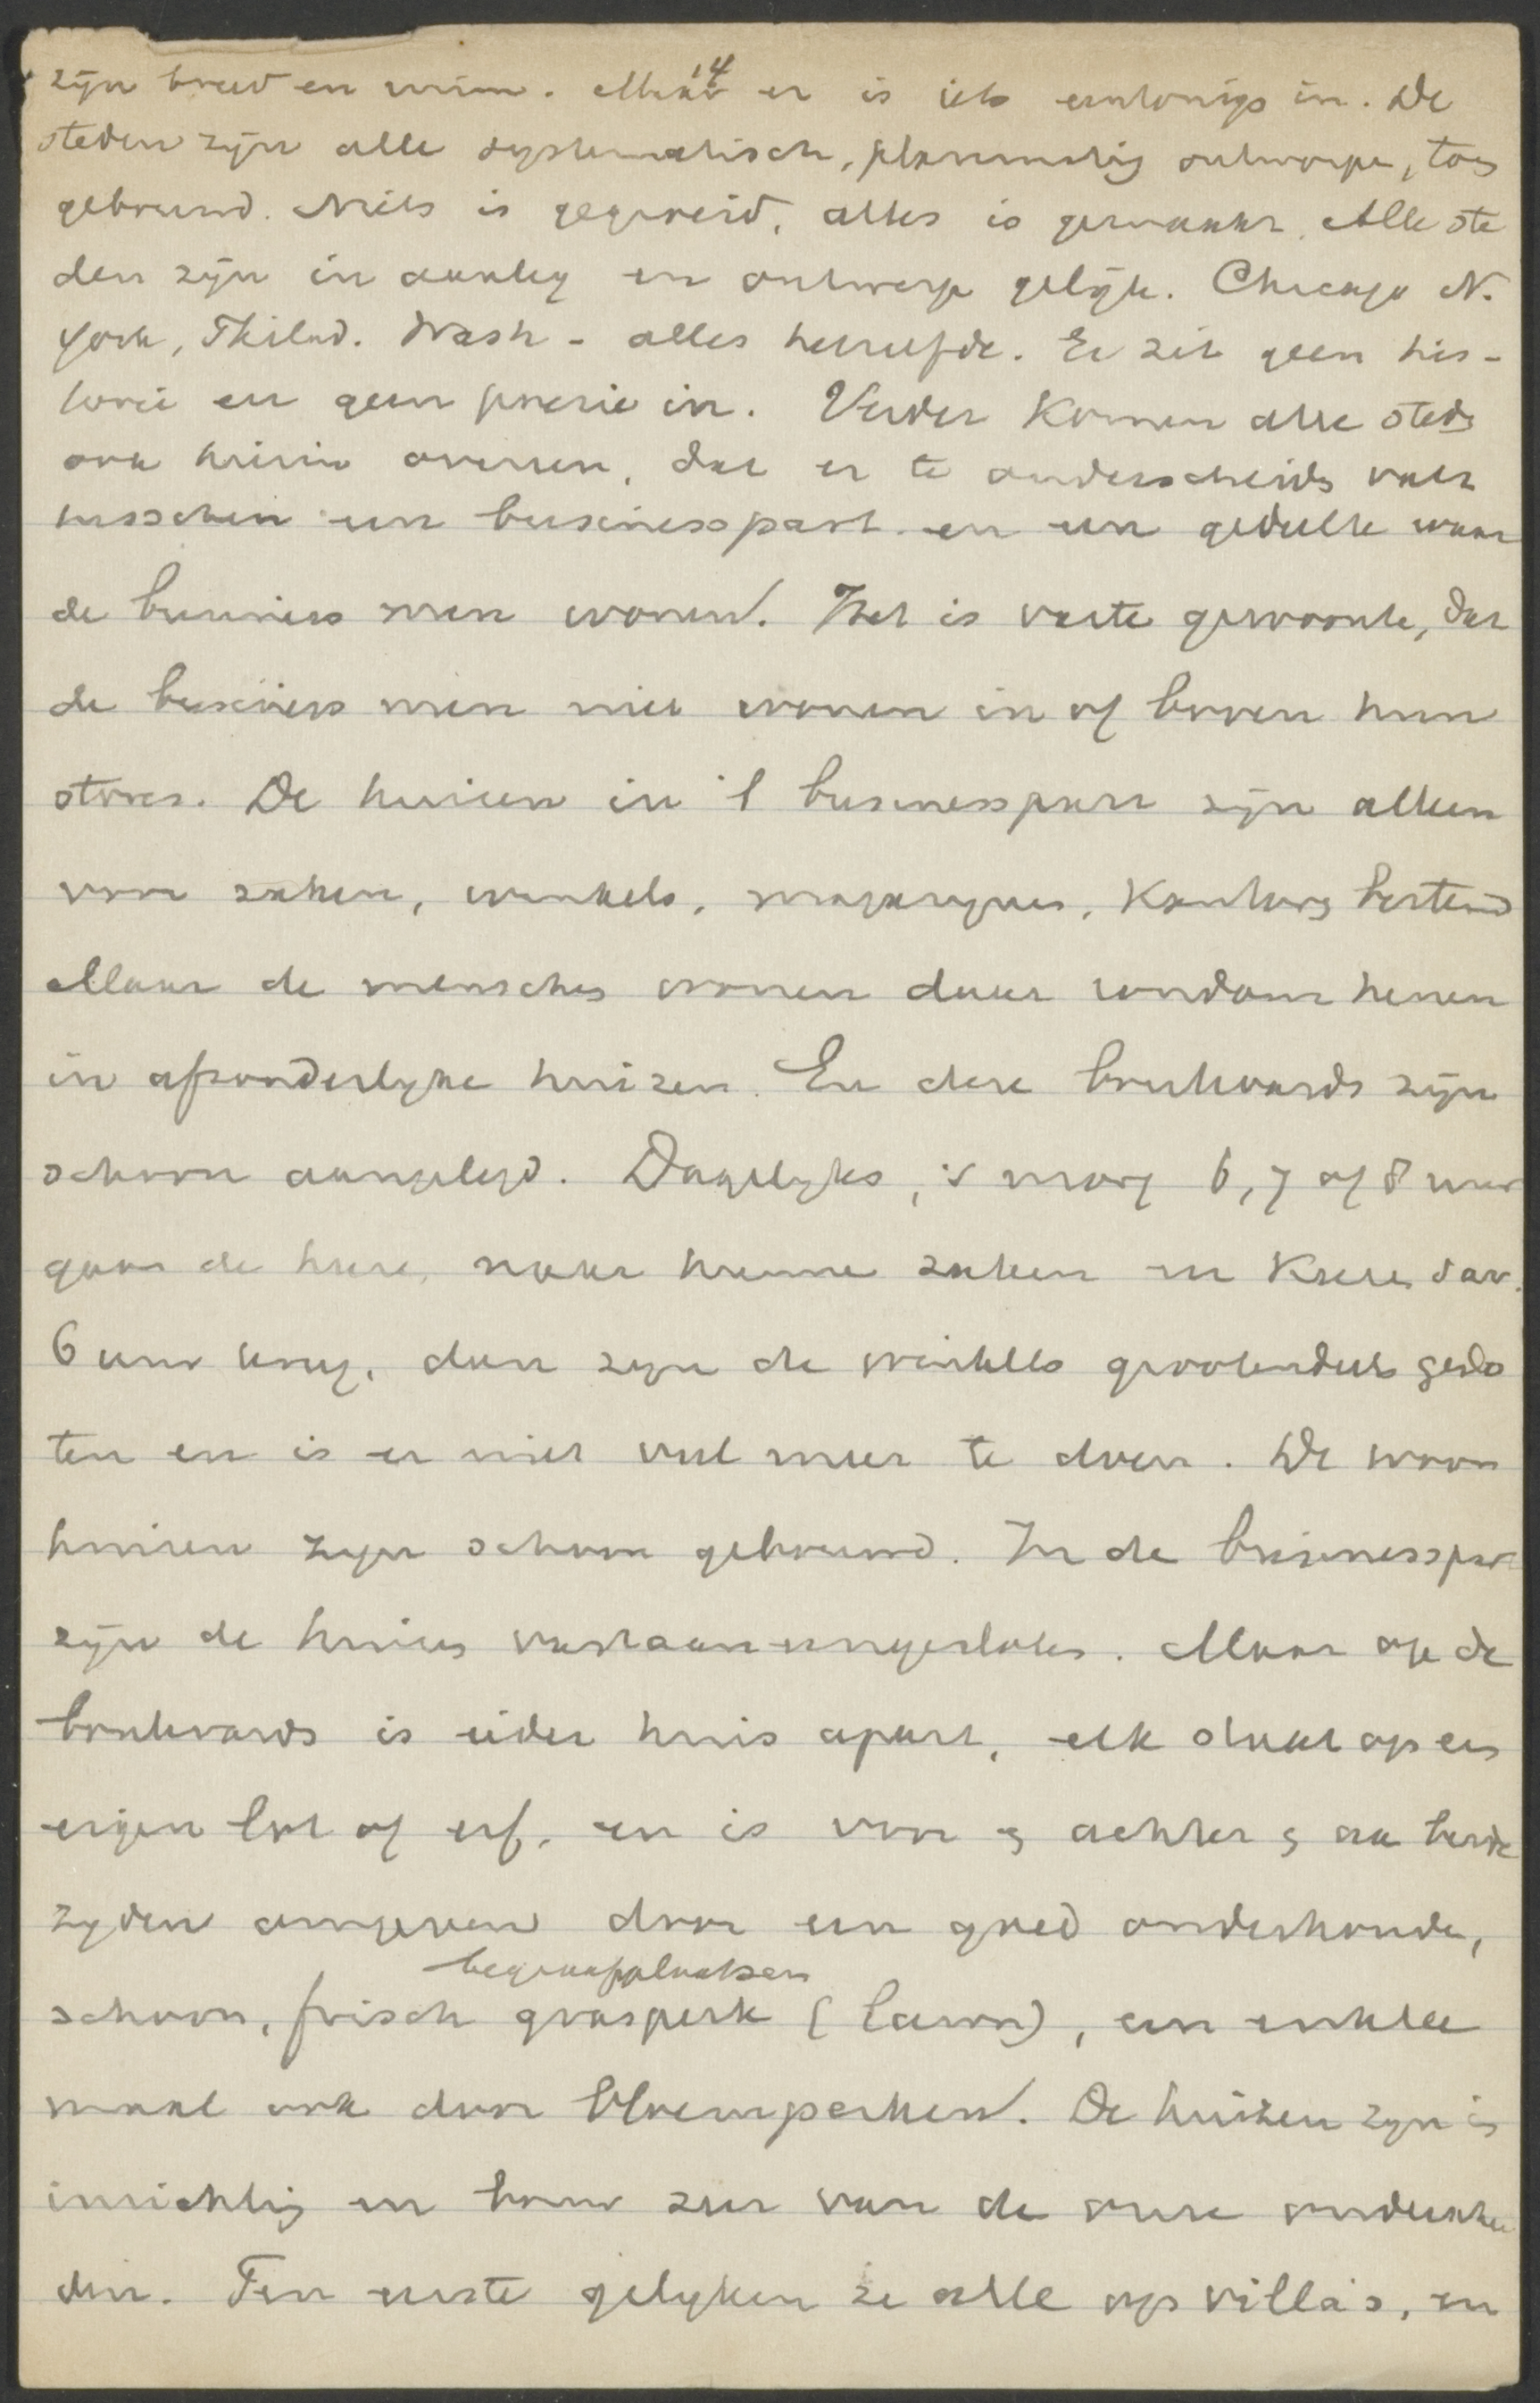 14
zijn breed en ruim. Maar er is iets eentonigs in. De
steden zijn alle systematisch, planmatig ontworpen,
gebouwd. Niets is gegroeid, alles is gemaakt. Alle ste
den zijn in aanleg en ontwerp gelijk. Chicago N.
York, Philad. Wash - alles hetzelfde. Er zit geen his-
torie en geen poezie in. Verder komen alle steden
ook hierin overeen, dat er te onderscheiden valt
tusschen een businesspart en een gedeelte waar
de business men wonen. Het is vaste gewoonte, dat
de business men niet wonen in of boven hun
stores. De huizen in 't businesspart zijn alleen
voor zaken, winkels, magazynen, kantoren bestemd
Maar de menschen wonen daar rondom henen
in afzonderlyke huizen. En deze boulevards zijn
schoon aangelegd. Dagelyks, 's morg 6, 7 of 8 uur
gaan de heeren naar hunne zaken en keeren s av.
6 uur terug, dan zyn de winkels grootendeels geslo
ten en is er niet veel meer te doen. De woon
huizen zyn schoon gebouwd. In de businesspart
zijn de huizen vastaaneengesloten. Maar op de
boulevards is ieder huis apart, elk staat op een
eigen lot of erf, en is voor en achter en aan beide
zyden omgeven door een goed onderhouden,
begraafplaatsen
schoon, frisch grasperk (lawn), een enkele
maal ook door bloemperken. De huizen zyn in
inrichting en bouw zeer van de onze onderschei
den. Ten eerste gelyken ze alle op villa's, en